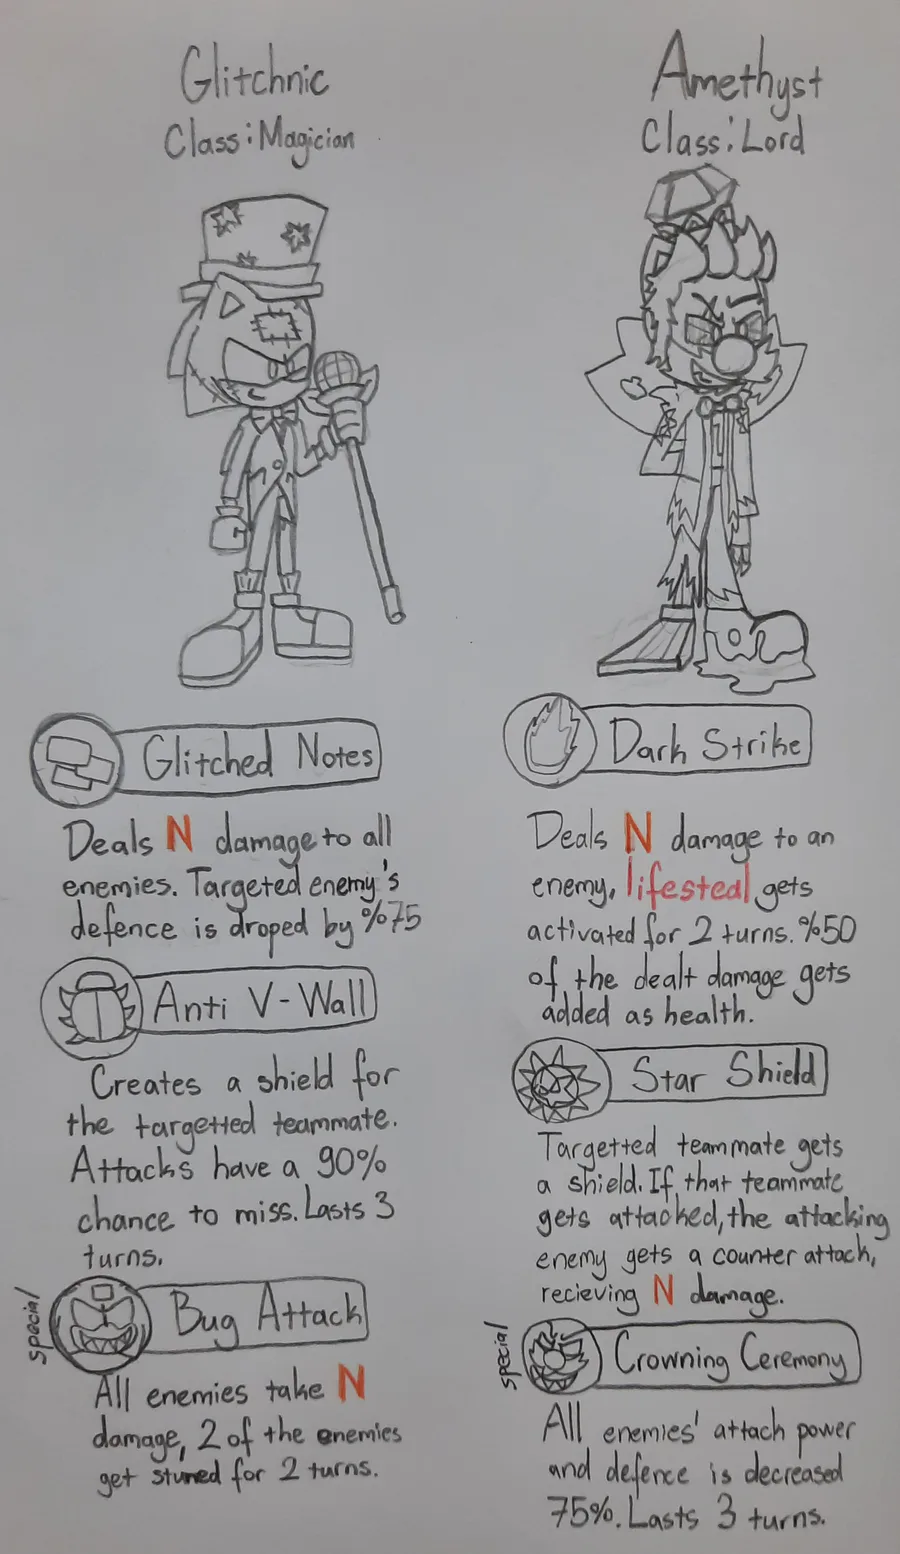 Glitchnic
Class:Magician
Glitched Notes
Deals N damage to all
enemies. Targeted enemy's
defence is droped by %75
Anti V-Wall
Creates a shield for
the targetted teammate.
Attacks have a 90%
chance to miss. Lasts 3
turns.
special
Bug Attack
All enemies take N
damage, 2 of the enemies
get stuned for 2 turns.
Amethyst
Class:Lord
Dark Strike
Deals N damage to an
enemy, lifesteal gets
activated for 2 turns. %50
of the dealt damage gets
added as health.
Star Shield
Targetted teammate gets
a shield. If that teammate
gets attacked, the attacking
enemy gets a counter attack,
recieving N damage.
special
Crowning Ceremony
All enemies' attach power
and defence is decreased
75%. Lasts 3 turns.